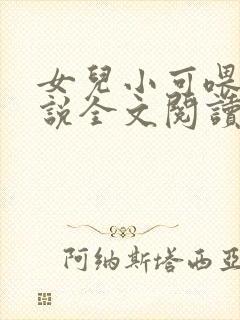 女兒小可喂
說全文閱讀
阿纳斯塔西亚